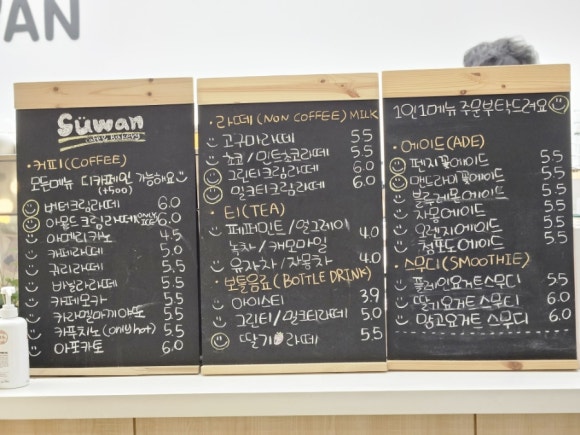 WAN
Süwan
cafe & bakery
커피(COFFEE)
모든메뉴 디카페인 가능해요
(+500)
버터크림라떼 6.0
아몬드크림라떼 6.0
아메리카노 4.5
카페라떼 5.0
귀리라떼 5.5
바닐라라떼 5.5
카페모카 5.5
카라멜마끼야또 5.5
카푸치노(only hot) 5.5
아포카토 6.0
라떼(NON COFFEE) MILK
고구마라떼 5.5
초코/민트초코라떼 5.5
그린티크림라떼 6.0
밀크티크림라떼 6.0
티(TEA)
페퍼민트/얼그레이
녹차/캐모마일 4.0
유자차/자몽차 4.0
보틀음료(BOTTLE DRINK)
아이스티 3.9
그린티/밀크티라떼 5.0
딸기라떼 5.5
1인 1메뉴 주문부탁드려요
에이드(ADE)
팬지꽃에이드 5.5
맨드라미꽃에이드 5.5
블루레몬에이드 5.5
자몽에이드 5.5
오렌지에이드 5.5
청포도에이드 5.5
스무디(SMOOTHIE)
플레인요거트스무디 5.5
딸기요거트스무디 6.0
망고요거트스무디 6.0